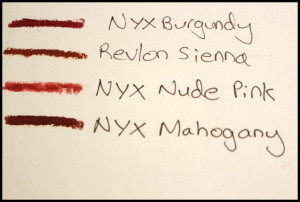 NYX Burgundy
Revlon Sienna
NYX Nude Pink
NYX Mahogany